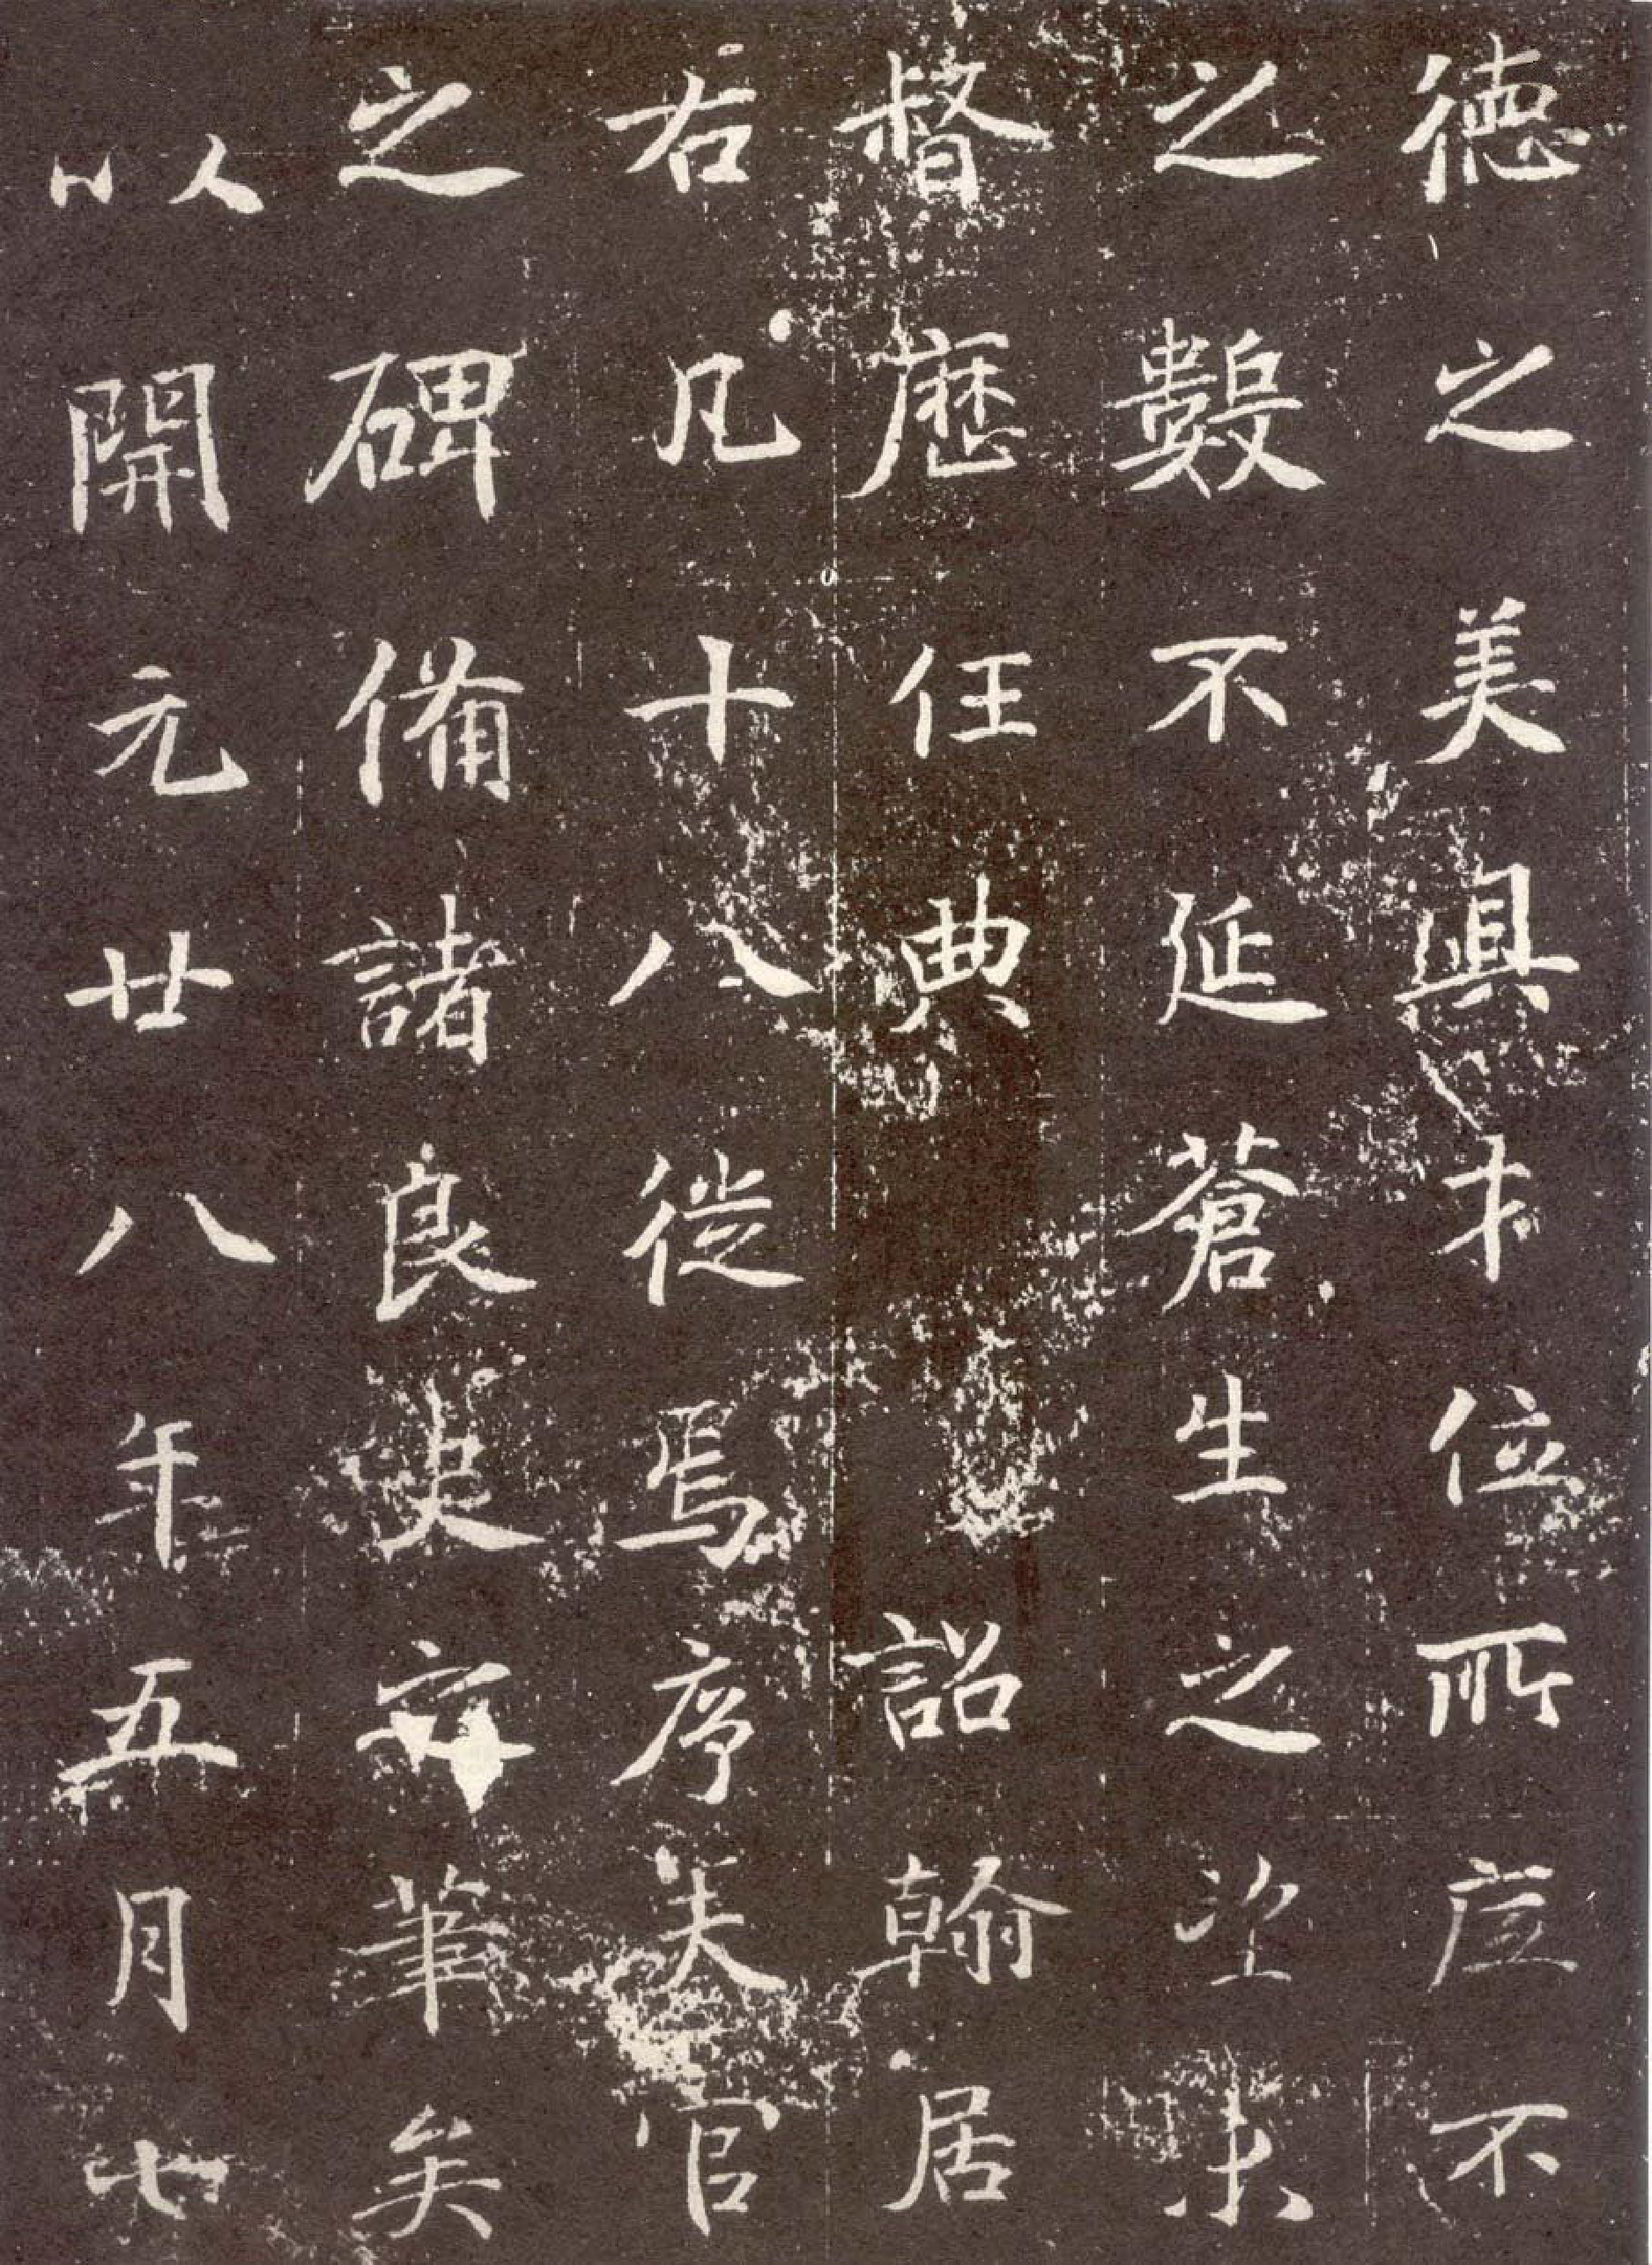 德之美與才位所應不
之數不延蒼生之望未
督歷任典詔翰居
右凡十八徙焉序夫官
之碑備諸良史筆矣
以開元廿八年五月七